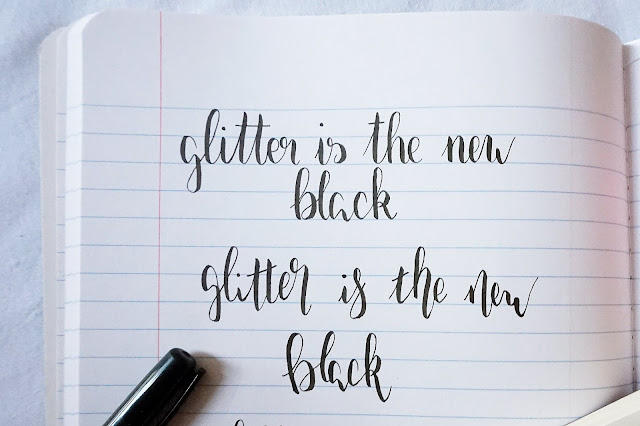 glitter is the new
black
glitter is the new
black